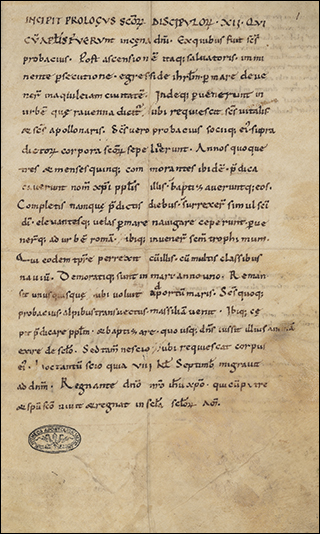 INCIPIT PROLOGUS SCŌR̄ DISCIPULOR̄ · XII · QVI
CŪ APL̄IS FVERVNT in cena dn̄i. Ex quibus fuit scs̄
probacius. Post ascensionē itaq; saluatoris. immi
nente p̄secutione. egressi de ihrl̄m p mare deue
ner̄ in aquileiam ciuitatē. Inde q; peruenerunt in
urbē quę rauenna dicit̄ ubi requiescit scs̄ uitalis
& scs̄ apollonaris. Scs̄ uero probacius sociiq; ei' supra
dictor̄ corpora scōr̄ sepelierunt. Annos quoque
tres & menses quinq; commorantes ibidē. p̄dica
uerunt nom̄ xp̄i pplis illis. baptizauerunt q; eos.
Completis namque p̄dictis diebus. surrexer̄ simul seui
dī. eleuantesq; uelas p mare nauigare ceperunt. peruene
ner̄ q; ad urbē romā. ibiq; inuener̄ scm̄ trophimum.
Qui eodem tp̄re perrexit cū illis. cū multis classibus
nauiū. Demoratiq; sunt in mare anno uno. Reman
sit unusquisque ubi uoluit ad portū maris. Scs̄ quoq;
probacius alpibus transuectus massiliā uenit. Ibiq; cę
pit p̄dicare pplm̄. & baptizare. quousq; dn̄s iussit illius animā
exire de sclo. Sed tam̄ nescio ubi requiescat corpus
ei'. Hoc tantū scio quia VIII kl̄ Septimb̄ migrauit
ad dnm̄. Regnante dn̄o nr̄o ihu xp̄o. qui cū patre
& spū scō uiuit & regnat in scl̄a sclōr̄ am̄.